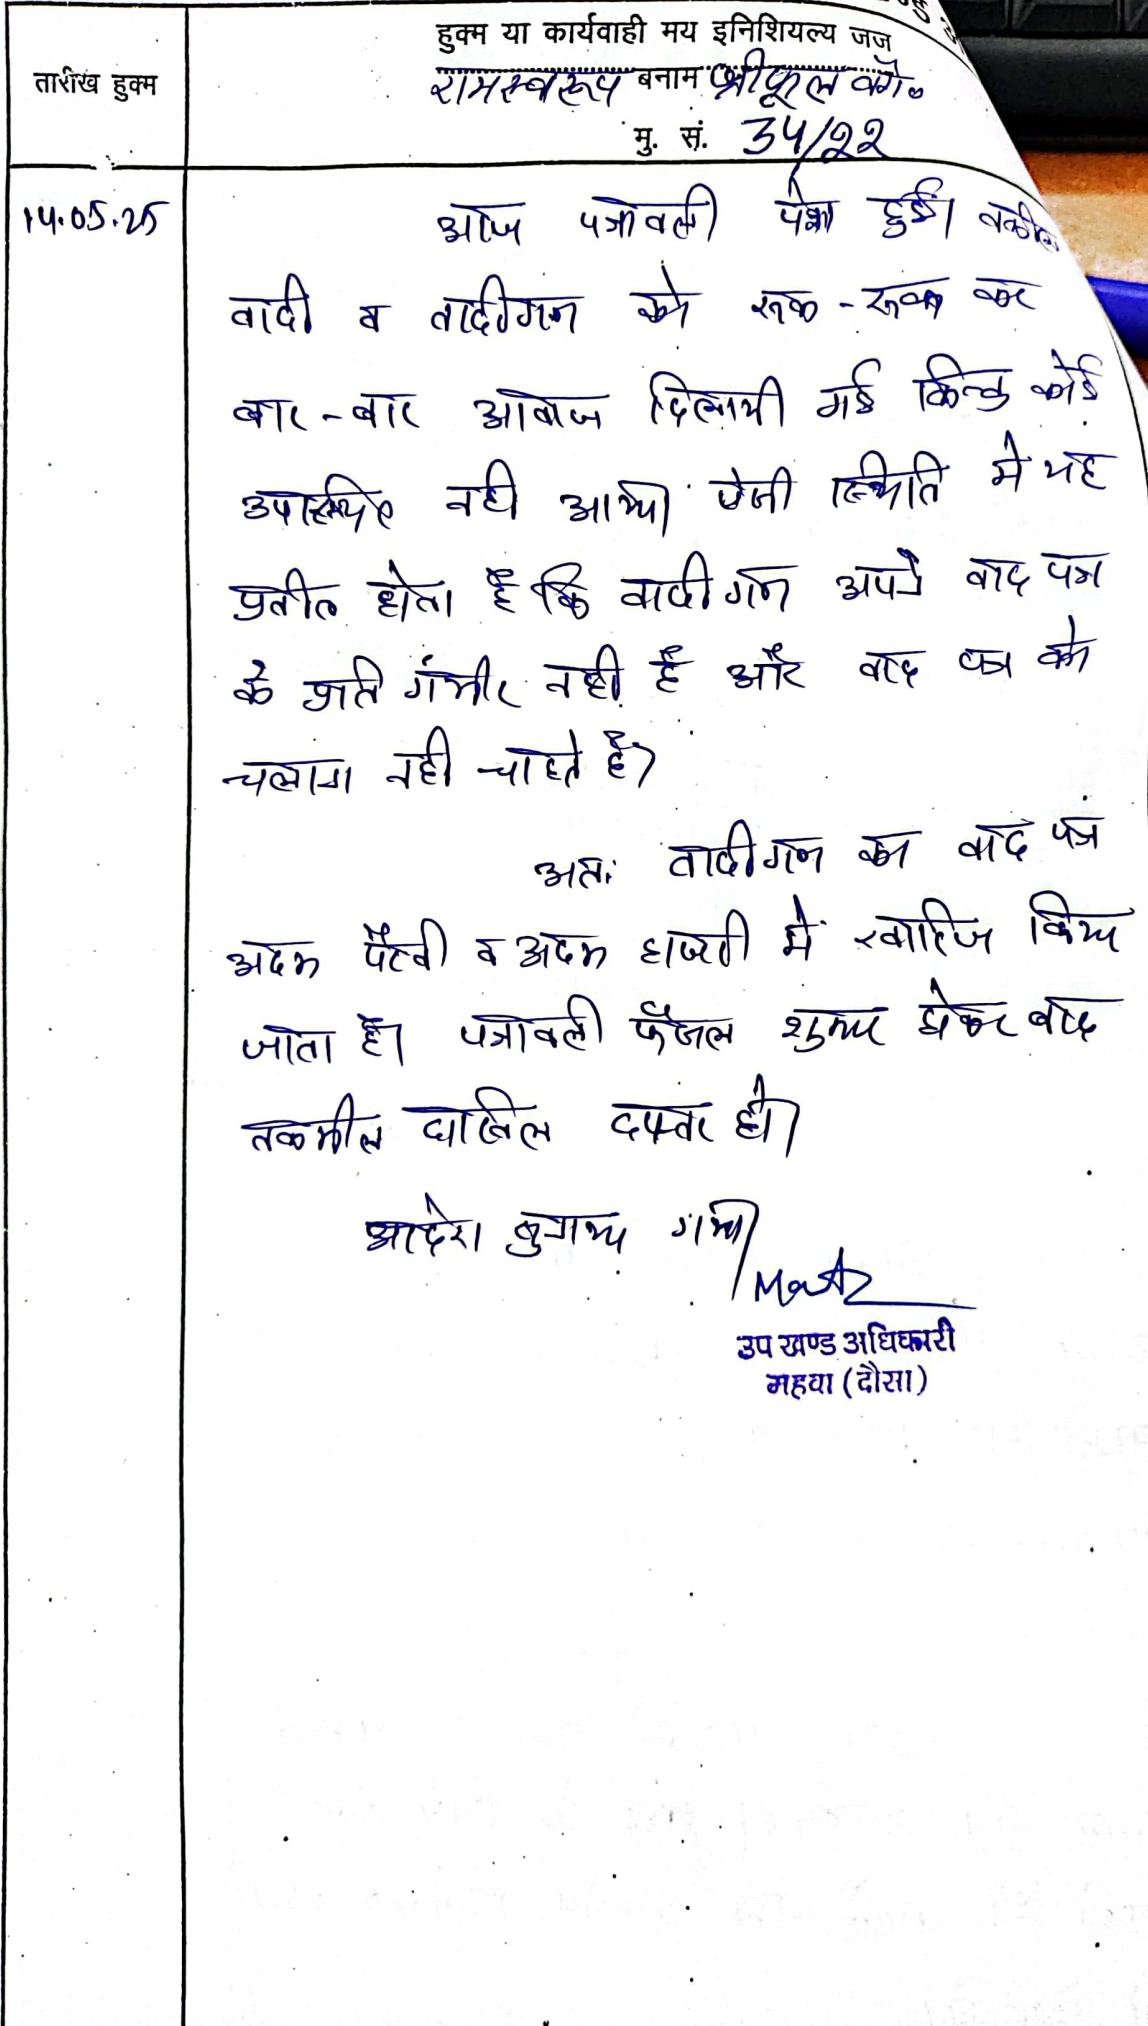 हुक्म या कार्यवाही मय इनिशियल्य जज
तारीख हुक्म
रामस्वरूप बनाम श्रीफूल वगै०
मु. सं. 34/22
14.05.25
आज पत्रावली पेश हुई। वकील
वादी व वादीगण को रूक-रूक कर
बार-बार आवाज दिलायी गई किन्तु कोई
उपस्थित नही आया। ऐसी स्थिति मे यह
प्रतीत होता है कि वादीगण अपने वाद पत्र
के प्रति गंभीर नही है और वाद पत्र को
चलाना नही चाहते है।
अतः वादीगण का वाद पत्र
अदम पैरवी व अदम हाजरी में खारिज किया
जाता है। पत्रावली फैसल शुमार होकर बाद
तकमील दाखिल दफ्तर हो।
आदेश सुनाया गया।
उप खण्ड अधिकारी
महवा (दौसा)